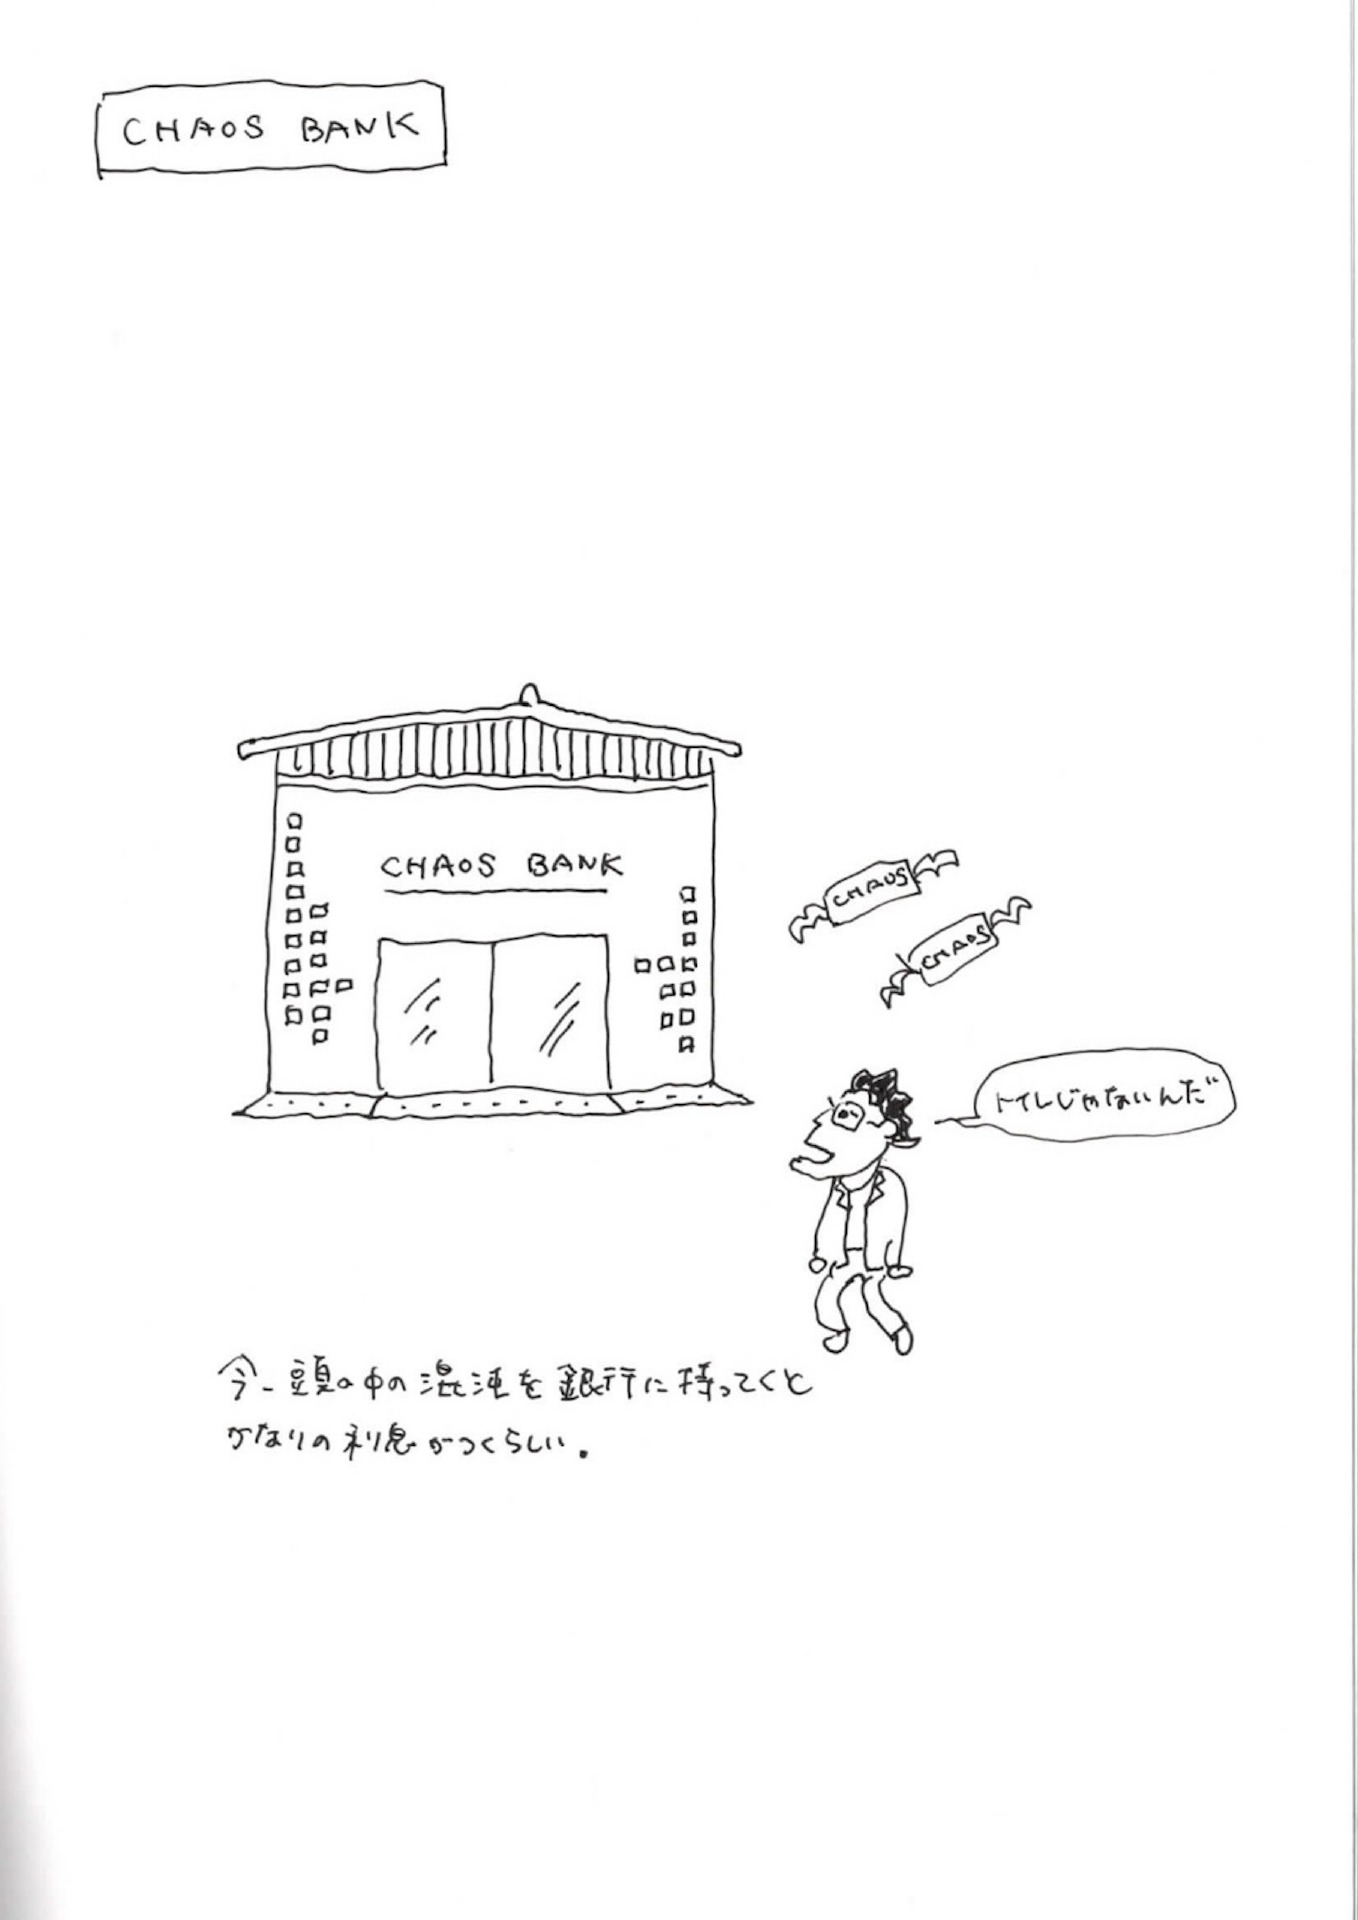 CHAOS BANK
CHAOS BANK
CHAOS
CHAOS
トイレじゃないんだ
今、頭の中の混沌を銀行に持ってくと
かなりの利息がつくらしい。